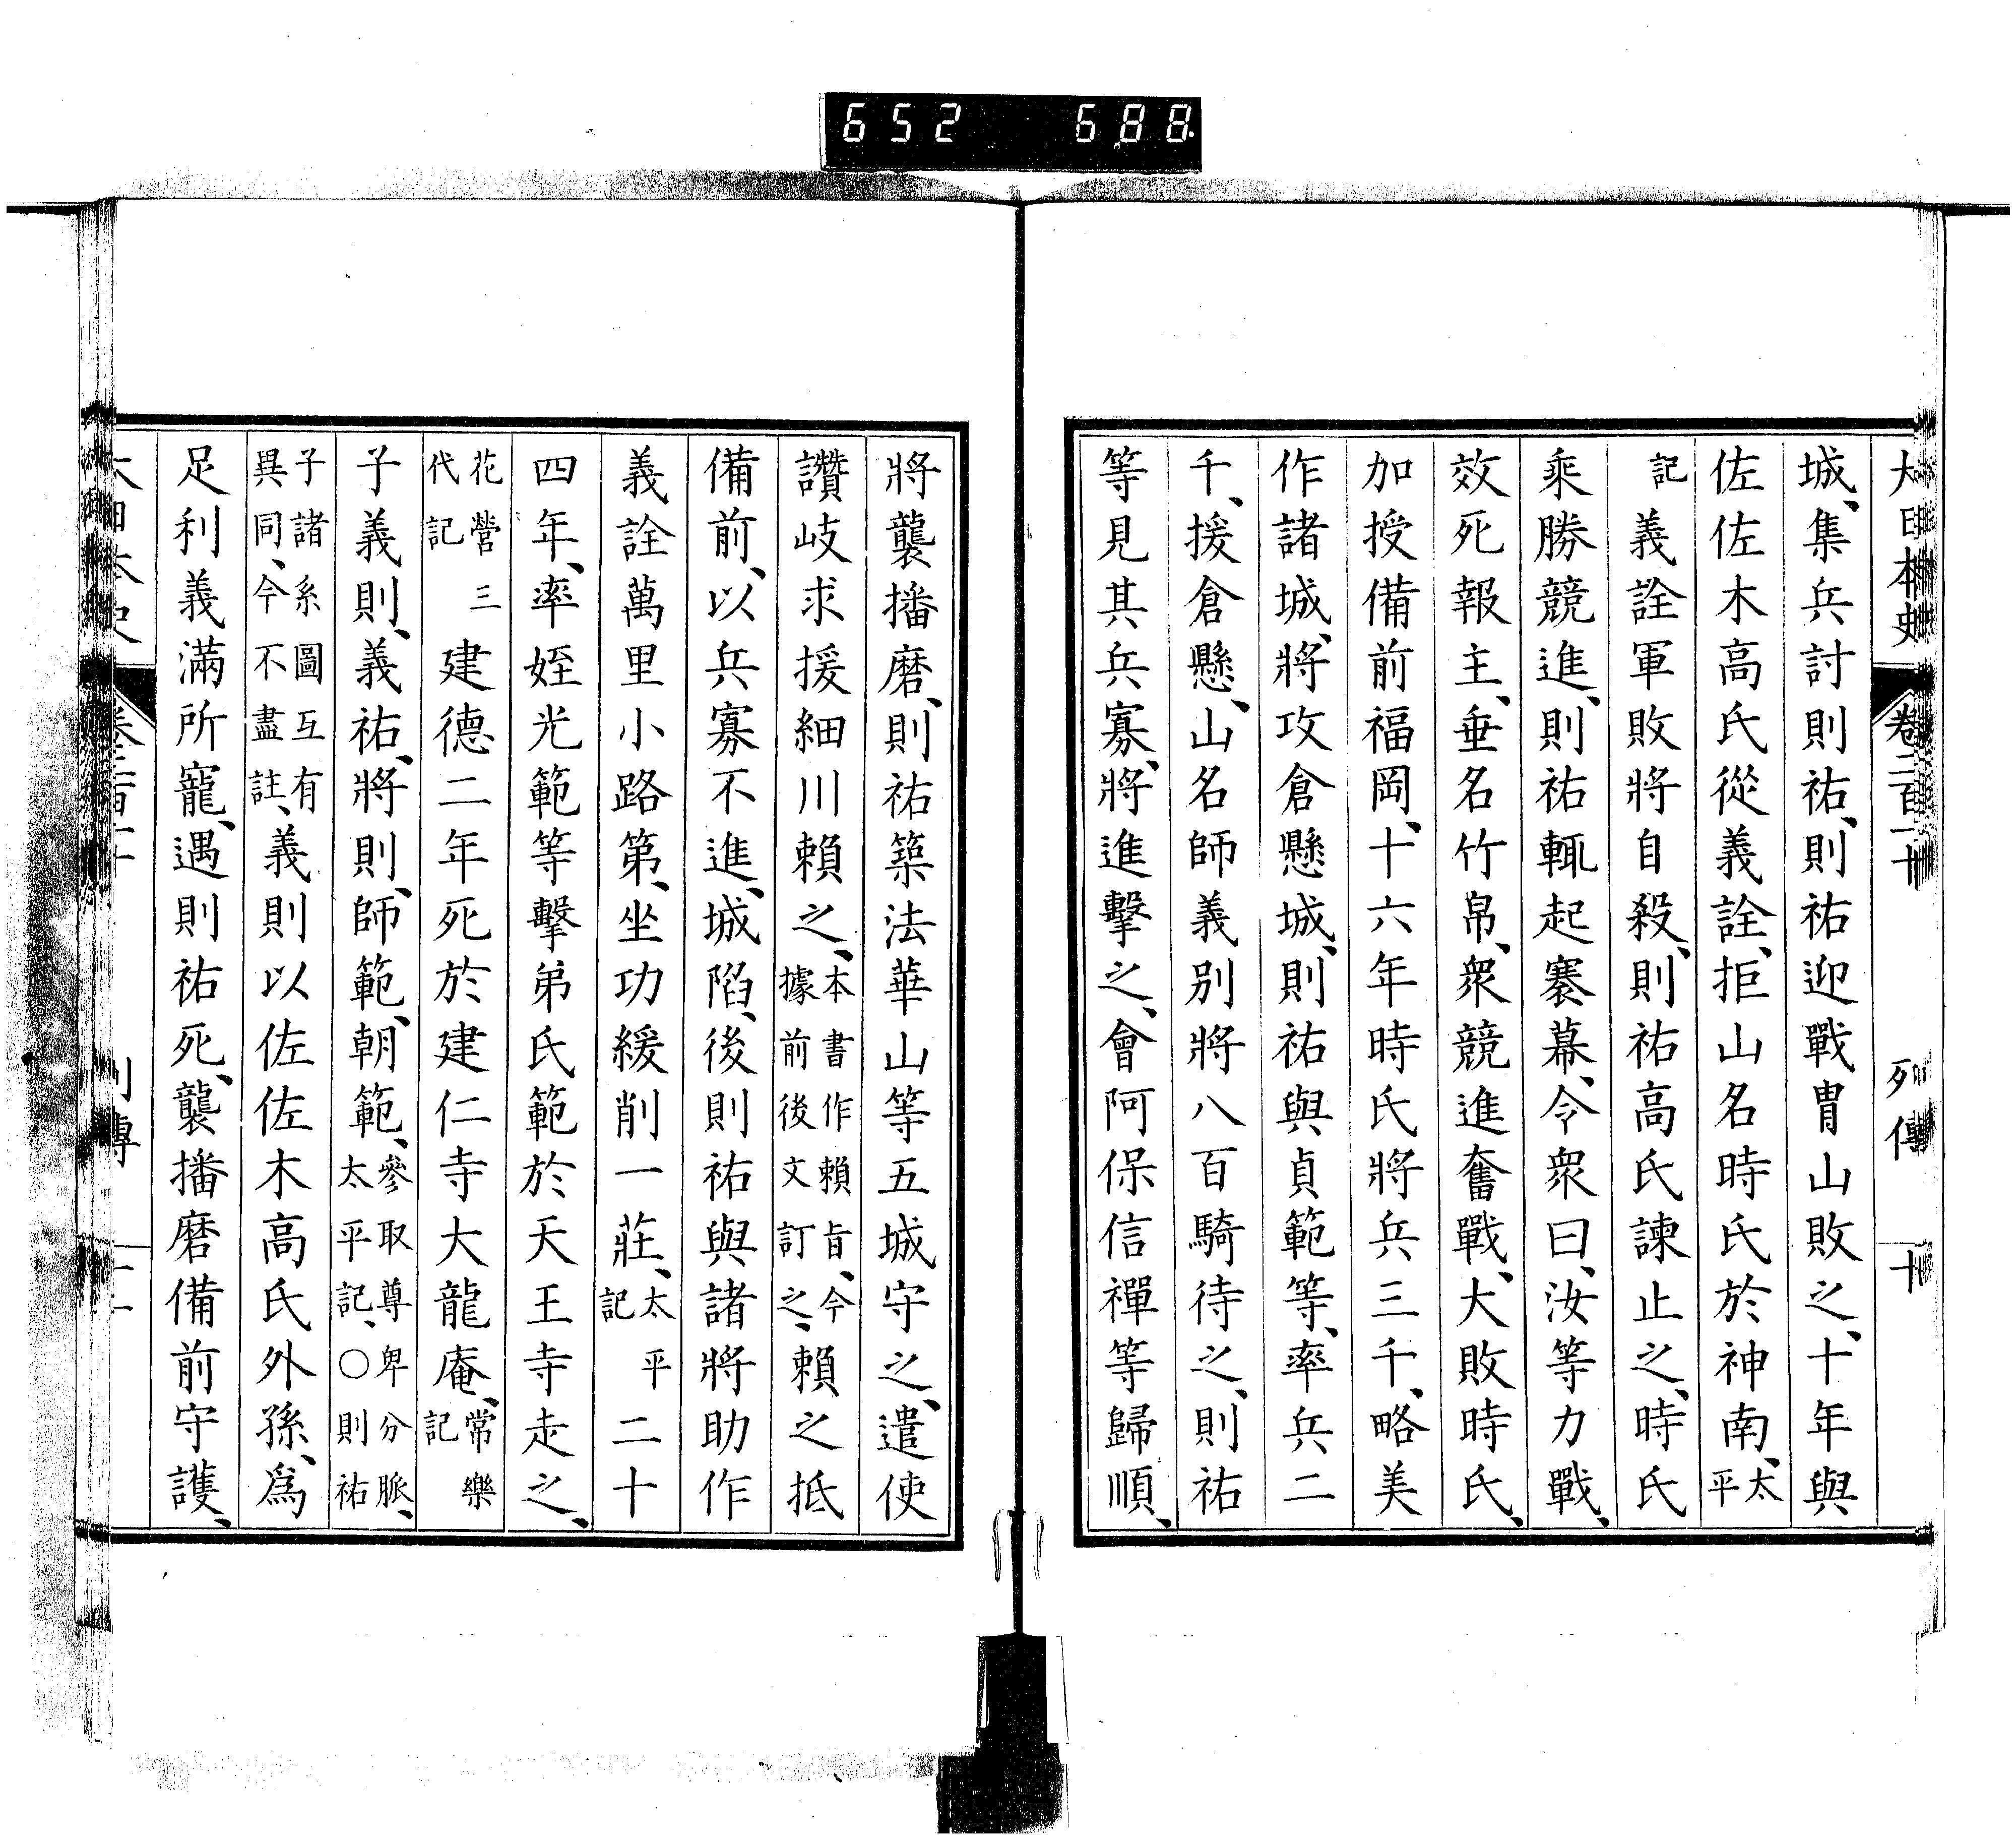 652 688
大日本史 卷二百一十 列傳 十
城、集兵討則祐、則祐迎戰冑山敗之、十年與
佐佐木高氏從義詮、拒山名時氏於神南、太平
記義詮軍敗將自殺、則祐高氏諫止之、時氏
乘勝競進、則祐輒起褰幕、令衆曰、汝等力戰、
效死報主、垂名竹帛、衆競進奮戰、大敗時氏、
加授備前福岡、十六年時氏將兵三千、略美
作諸城、將攻倉懸城、則祐與貞範等、率兵二
千、援倉懸、山名師義別將八百騎待之、則祐
等見其兵寡、將進擊之、會阿保信禪等歸順、
將襲播磨、則祐築法華山等五城守之、遣使
讚岐求援細川賴之、本書作賴旨、今據前後文訂之、賴之抵
備前、以兵寡不進、城陷、後則祐與諸將助作
義詮萬里小路第、坐功緩削一莊、太平記二十
四年、率姪光範等擊弟氏範於天王寺走之、
花營三代記建德二年死於建仁寺大龍庵、常樂記
子義則、義祐、將則、師範、朝範、參取尊卑分脈、太平記、○則祐
子諸系圖互有異同、今不盡註、義則以佐佐木高氏外孫、爲
足利義滿所寵、遇則祐死、襲播磨備前守護、
列傳